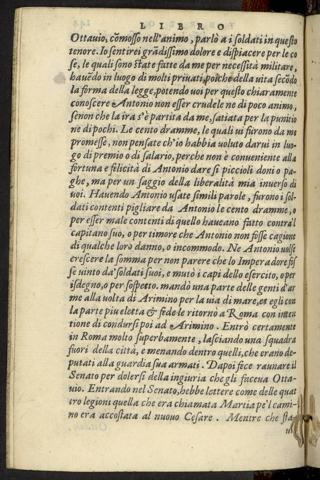 LIBRO
Ottauio, cõmosso nell'animo, parlò a i soldati in questo
tenore. Io sentirei grãdissimo dolore e dispiacere per le co
se, le quali sono state fatte da me per necessità militare,
hauẽdo in luogo di molti priuati, poiche della uita secõdo
la forma della legge, potendo uoi per questo chiaramente
conoscere Antonio non esser crudele ne di poco animo,
senon che la ira s'è partita da me, satiata per la punitio
ne di pochi. Le cento dramme, le quali ui furono da me
promesse, non pensate ch'io habbia uoluto darui in luo-
go di premio o di salario, perche non è conueniente alla
fortuna e filicità di Antonio dare sì piccioli doni o pa-
ghe, ma per un saggio della liberalità mia inuerso di
uoi. Hauendo Antonio usate simili parole, furono i sol-
dati contenti pigliare da Antonio le cento dramme, o
per esser male contenti di quello haueano fatto contra'l
capitano suo, o per timore che Antonio non fosse cagione
di qualche loro danno, o incommodo. Ne Antonio uolse
crescere la somma per non parere che lo Imperadore fos
se uinto da' soldati suoi, e mutò i capi dello esercito, o per
isdegno, o per sospetto. mandò una parte delle genti d'ar
me alla uolta di Arimino per la uia di mare, et egli con
la parte piu eletta & fedele ritornò a Roma con inten
tione di condursi poi ad Arimino. Entrò certamente
in Roma molto superbamente, lasciando una squadra
fuori della città, e menando dentro quelli, che erano de-
putati alla guardia sua armati. Dapoi fece raunare il
Senato per dolersi della ingiuria che gli faceua Otta-
uio. Entrando nel Senato, hebbe lettere come delle quat
tro legioni quella che era chiamata Martia pe'l cami-
no era accostata al nuouo Cesare. Mentre che sta-